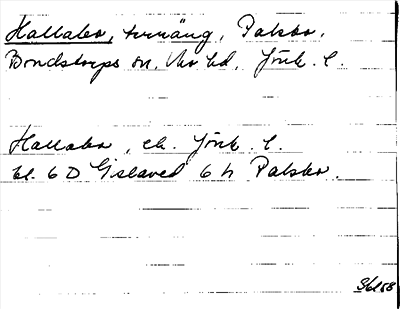 Hallabo, tvrnäng, Palsbo,
Bondstorps sn, Mo hd, Jönk. l.
Hallabo, ek. Jönk. l.
bl. 6 D Gislaved 6 h Palsbo.